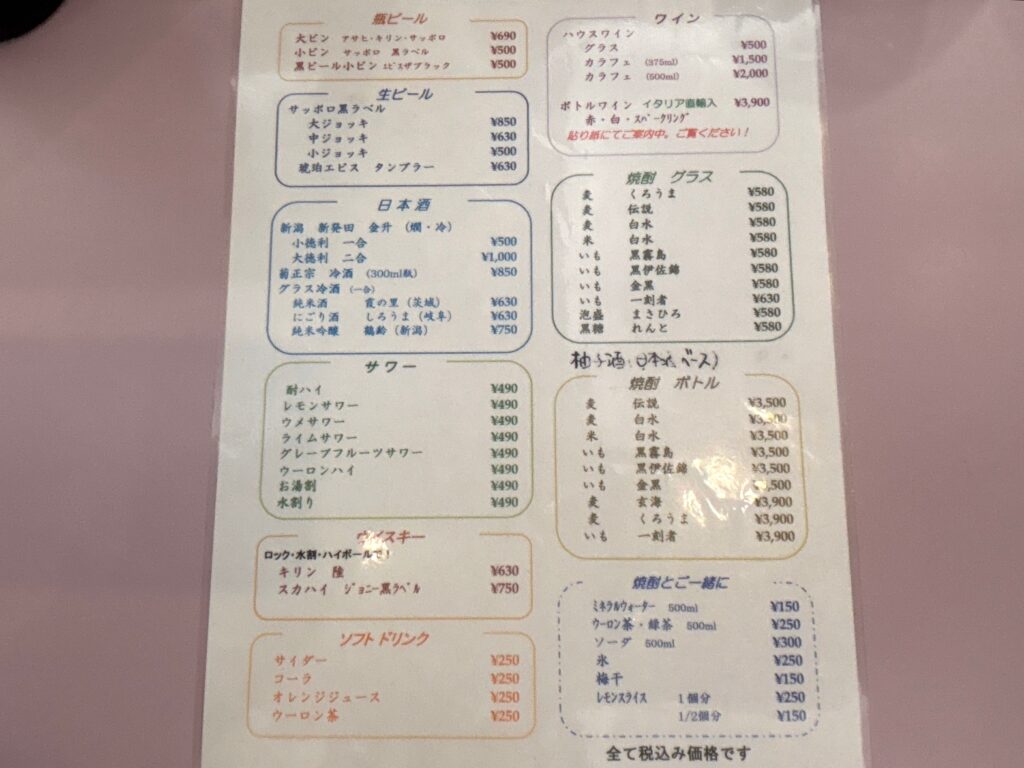 瓶ビール
大ビン アサヒ・キリン・サッポロ ¥690
小ビン サッポロ 黒ラベル ¥500
黒ビール小ビン エビスザブラック ¥500
生ビール
サッポロ黒ラベル
大ジョッキ ¥850
中ジョッキ ¥630
小ジョッキ ¥500
琥珀エビス タンブラー ¥630
日本酒
新潟 新発田 金升 (燗・冷)
小徳利 一合 ¥500
大徳利 二合 ¥1,000
菊正宗 冷酒 (300ml瓶) ¥850
グラス冷酒 (一合)
純米酒 霞の里(茨城) ¥630
にごり酒 しろうま(岐阜) ¥630
純米吟醸 鶴齢(新潟) ¥750
サワー
酎ハイ ¥490
レモンサワー ¥490
ウメサワー ¥490
ライムサワー ¥490
グレープフルーツサワー ¥490
ウーロンハイ ¥490
お湯割 ¥490
水割り ¥490
ウイスキー
ロック・水割・ハイボールで!
キリン 陸 ¥630
スカハイ ジョニー黒ラベル ¥750
ソフトドリンク
サイダー ¥250
コーラ ¥250
オレンジジュース ¥250
ウーロン茶 ¥250
ワイン
ハウスワイン
グラス ¥500
カラフェ (375ml) ¥1,500
カラフェ (500ml) ¥2,000
ボトルワイン イタリア直輸入 ¥3,900
赤・白・スパークリング
貼り紙にてご案内中。ご覧ください!
焼酎 グラス
麦 くろうま ¥580
麦 伝説 ¥580
麦 白水 ¥580
米 白水 ¥580
いも 黒霧島 ¥580
いも 黒伊佐錦 ¥580
いも 金黒 ¥580
いも 一刻者 ¥630
泡盛 まさひろ ¥580
黒糖 れんと ¥580
柚子酒(日本酒ベース)
焼酎 ボトル
麦 伝説 ¥3,500
麦 白水
米 白水 ¥3,500
いも 黒霧島 ¥3,500
いも 黒伊佐錦 ¥3,500
いも 金黒
麦 玄海 ¥3,900
麦 くろうま ¥3,900
いも 一刻者 ¥3,900
焼酎とご一緒に
ミネラルウォーター 500ml ¥150
ウーロン茶・緑茶 500ml ¥250
ソーダ 500ml ¥300
氷 ¥250
梅干 ¥150
レモンスライス 1個分 ¥250
1/2個分 ¥150
全て税込み価格です